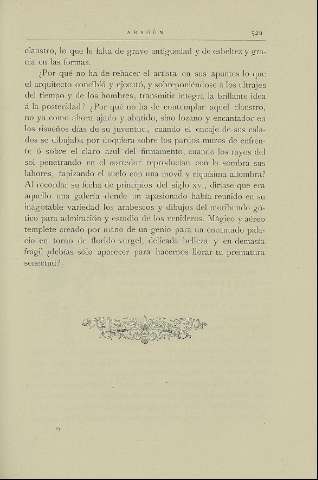 ARAGÓN 529
claustro, lo que le falta de grave antigüedad y de esbeltez y gra-
cia en las formas.
¿Por qué no ha de rehacer el artista en sus apuntes lo que
el arquitecto concibió y ejecutó, y sobreponiéndose á los ultrajes
del tiempo y de los hombres, transmitir íntegra la brillante idea
á la posteridad? ¿Por qué no ha de contemplar aquel claustro,
no ya como ahora ajado y abatido, sino lozano y encantador en
los risueños días de su juventud, cuando el encaje de sus cala-
dos se dibujaba por doquiera sobre los pardos muros de enfren-
te ó sobre el claro azul del firmamento, cuando los rayos del
sol penetrando en el corredor reproducían con la sombra sus
labores, tapizando el suelo con una movil y riquísima alfombra?
Al recordar su fecha de principios del siglo XV, diríase que era
aquello una galería donde un apasionado había reunido en su
inagotable variedad los arabescos y dibujos del moribundo gó-
tico para admiración y estudio de los venideros. Mágico y aéreo
templete creado por mano de un genio para un encantado pala-
cio en torno de florido vergel, delicada belleza y en demasía
frágil ¿debías sólo aparecer para hacernos llorar tu prematura
senectud?